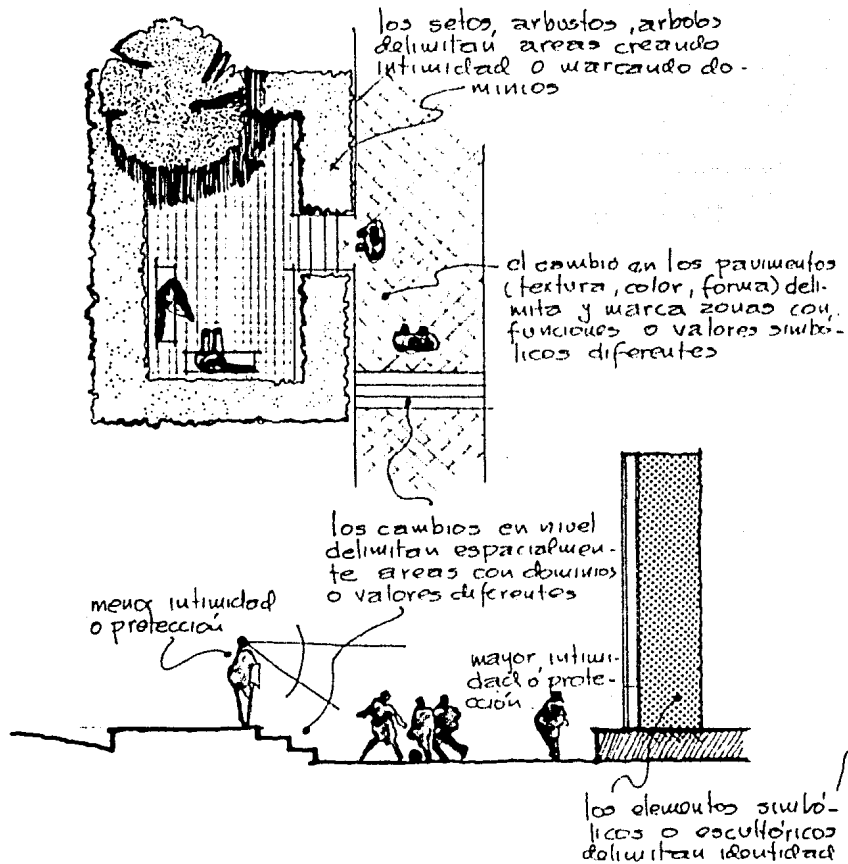 los setos, arbustos, arboles
delimitan areas creando
intimidad o marcando do-
minios
el cambio en los pavimentos
(textura, color, forma) deli-
mita y marca zonas con
funciones o valores simbó-
licos diferentes
los cambios en nivel
delimitan espacialmen-
te areas con dominios
o valores diferentes
menor intimidad
o protección
mayor intimi-
dad o prote-
cción
los elementos simbó-
licos o escultóricos
delimitan identidad